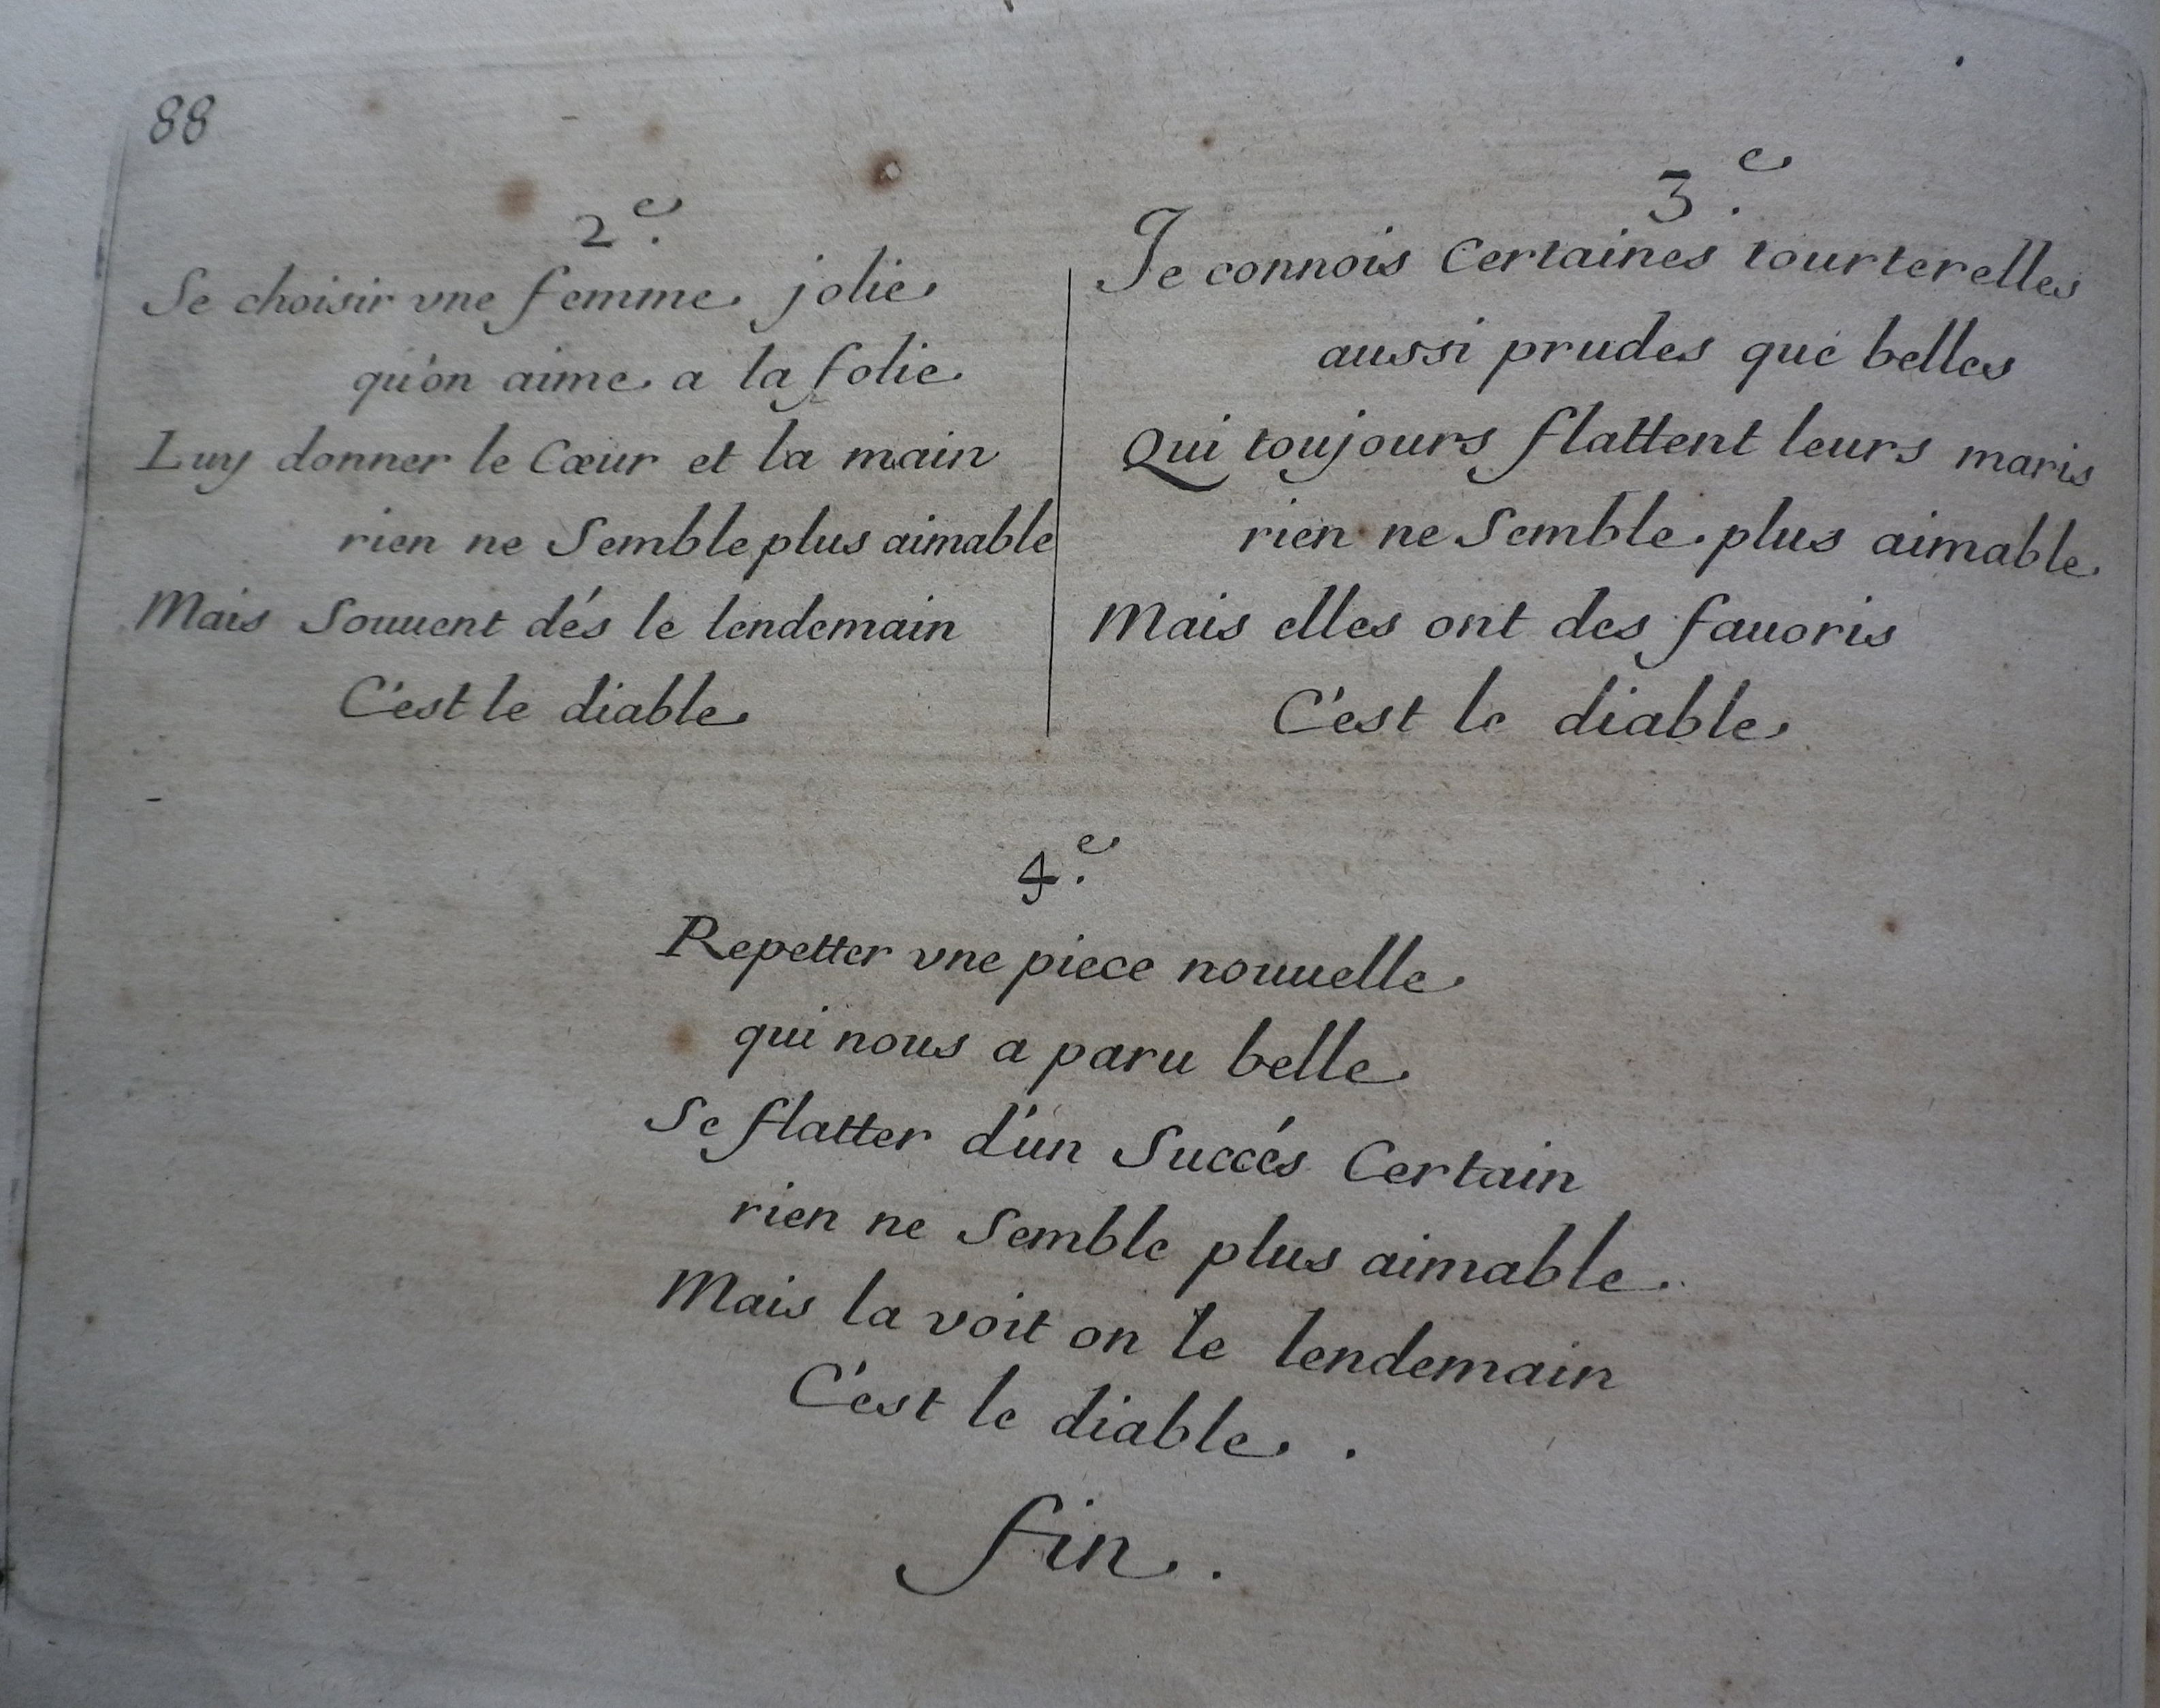 88
2e.
Se choisir vne femme jolie
qu'on aime a la folie
Luy donner le Cœur et la main
rien ne Semble plus aimable
Mais Souuent dés le lendemain
C'est le diable
3e.
Je connois Certaines tourterelles
aussi prudes que belles
Qui toujours flattent leurs maris
rien ne Semble plus aimable
Mais elles ont des fauoris
C'est le diable
4e.
Repetter vne piece nouuelle
qui nous a paru belle
Se flatter d'un Succés Certain
rien ne Semble plus aimable.
Mais la voit on le lendemain
C'est le diable.
fin.